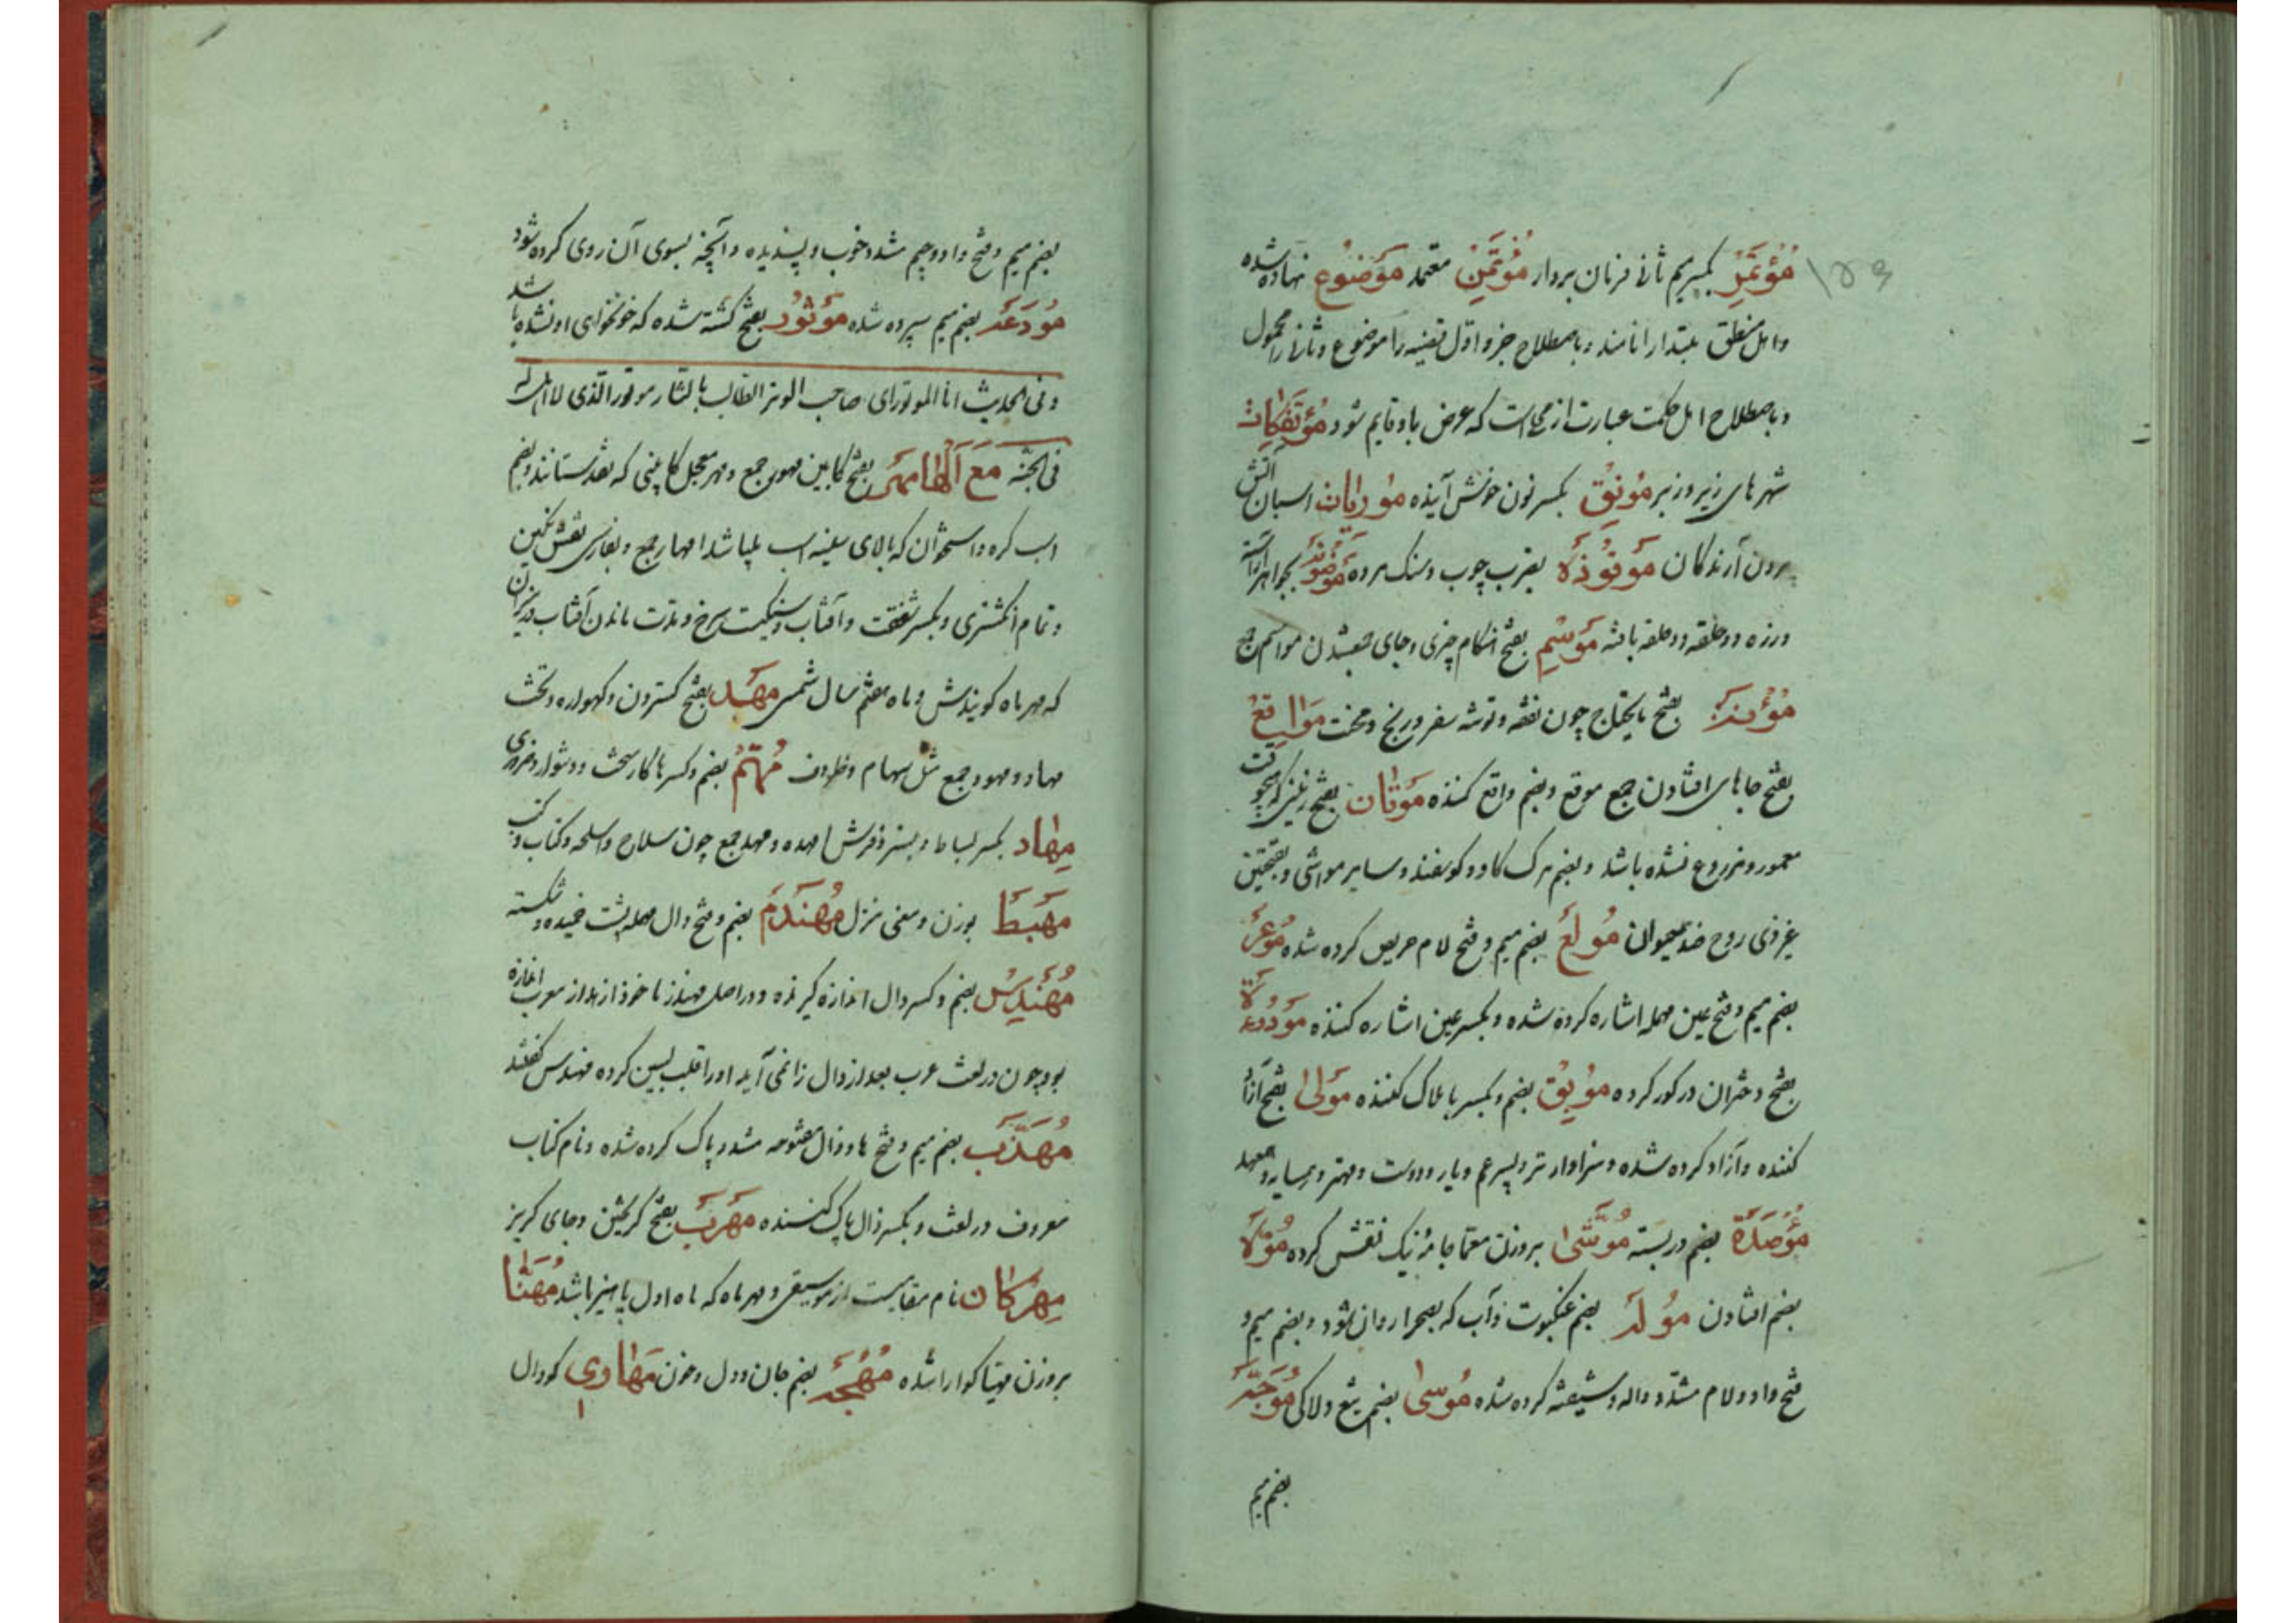 مُؤتَمِر بکسر میم ثانی فرمان بردار مُؤتَمِن معتمد مَوضُوع نهاده شده
۱۵۶
و اهل منطق مبتدا را نامند و باصطلاح جزو اول قضیه را موضوع و ثانی را محمول
و باصطلاح اهل حکمت عبارت از محلی است که عرض باو قایم شود مُؤتَفِکات
شهرهای زیر و زبر مُونِق بکسر نون خوش آینده مُورِیات اسبان آتش
برون آرندکان مَوقُوذَه بضرب چوب و سنک مرده مَوضُونَه بجواهر آراسته
و زره دو حلقه دو حلقه بافته مَوسِم بفتح هنکام چیزی و جای جمع شدن مواسم جمع
مَؤُنَه بفتح مایحتاج چون نفقه و توشه سفر و رنج و محنت مَواقِع
بفتح جاهای افتادن جمع موقع و بضم واقع کننده مَوتان بفتح زمینی که هیچوقت
معمور و مزروع نشده باشد و بضم مرک کاو و کوسفند و سایر مواشی و بفتحتین
غیر ذی روح ضد حیوان مُولَع بضم میم و فتح لام حریص کرده شده مُوعَز
بضم میم و فتح عین مهمله اشاره کرده شده و بکسر عین اشاره کننده مَوؤُدَة
بفتح دختران در کور کرده مُوبِق بضم و بکسر با هلاک کننده مَولٰی بفتح آزاد
کننده و آزاد کرده شده و سزاوارتر و پسر عم و یار و دوست و مهتر و همسایه و معهد
مُؤصَدَة بضم در بسته مُوَشّٰی بروزن معما جامهٔ نیک نقش کرده مُولَه
بضم افتادن مُولَه بضم عنکبوت و آب که بصحرا روان شود و بضم میم و
فتح واو و لام مشدد واله و شیفته کرده شده مُوسٰی بضم تیغ دلاکی مُوَجَّه
بضم میم
بضم میم و فتح واو و جیم مشدد خوب و پسندیده و آنچه بسوی آن روی کرده شود
مُودَعَه بضم میم سپرده شده مَوتُور بفتح کشته شده که خونخواهی او نشده باشد
و فی الحدیث انا الموتور ای صاحب الوتر الطالب بالثار موتور الذی لا اهل له
فی الجنه مَعَ الها مَهر بفتح کابین مهور جمع و مهر معجل کابینی که نقد ستانند و بضم
اسب کره و استخوان که بالای سینه اسب باشد امهار جمع و بفارسی نقش نکین
و تمام انکشتری و بکسر شفقت و آفتاب و سنکیست سرخ و مدت ماندن آفتاب در میزان
که مهر ماه کویندش و ماه هفتم سال شمسی مَهد بفتح کستردن و کهواره و تخت
مهاد و مهود جمع مثل سهام و ظروف مُهِمّ بضم و کسر ها کار سخت و دشوار و ضروری
مِهاد بکسر بساط و بستر و فرش امهده و مهد جمع چون سلاح و اسلحه و کتاب و کتب
مَهبَط بوزن و معنی منزل مُهَندَم بضم و فتح دال مهمله پشت خمیده و شکسته
مُهَندِس بضم و کسر دال اندازه کیرنده و در اصل مهندز ماخوذ از هنداز معرب اندازه
بود چون در لغت عرب بعد از دال زا نمی آید او را قلب بسین کرده مهندس کفتند
مُهَذَّب بضم میم و فتح ها و ذال مفتوحه مشدد پاک کرده شده و نام کتاب
معروف در لغت و بکسر ذال پاک کننده مَهرَب بفتح کریختن و جای کریز
مِهرَکان نام مقامیست از موسیقی و مهر ماه که ماه اول پاییز باشد مُهَنّا
بروزن مهیا کوارا شده مُهجَه بضم جان و دل و خون مَهاوی کودال